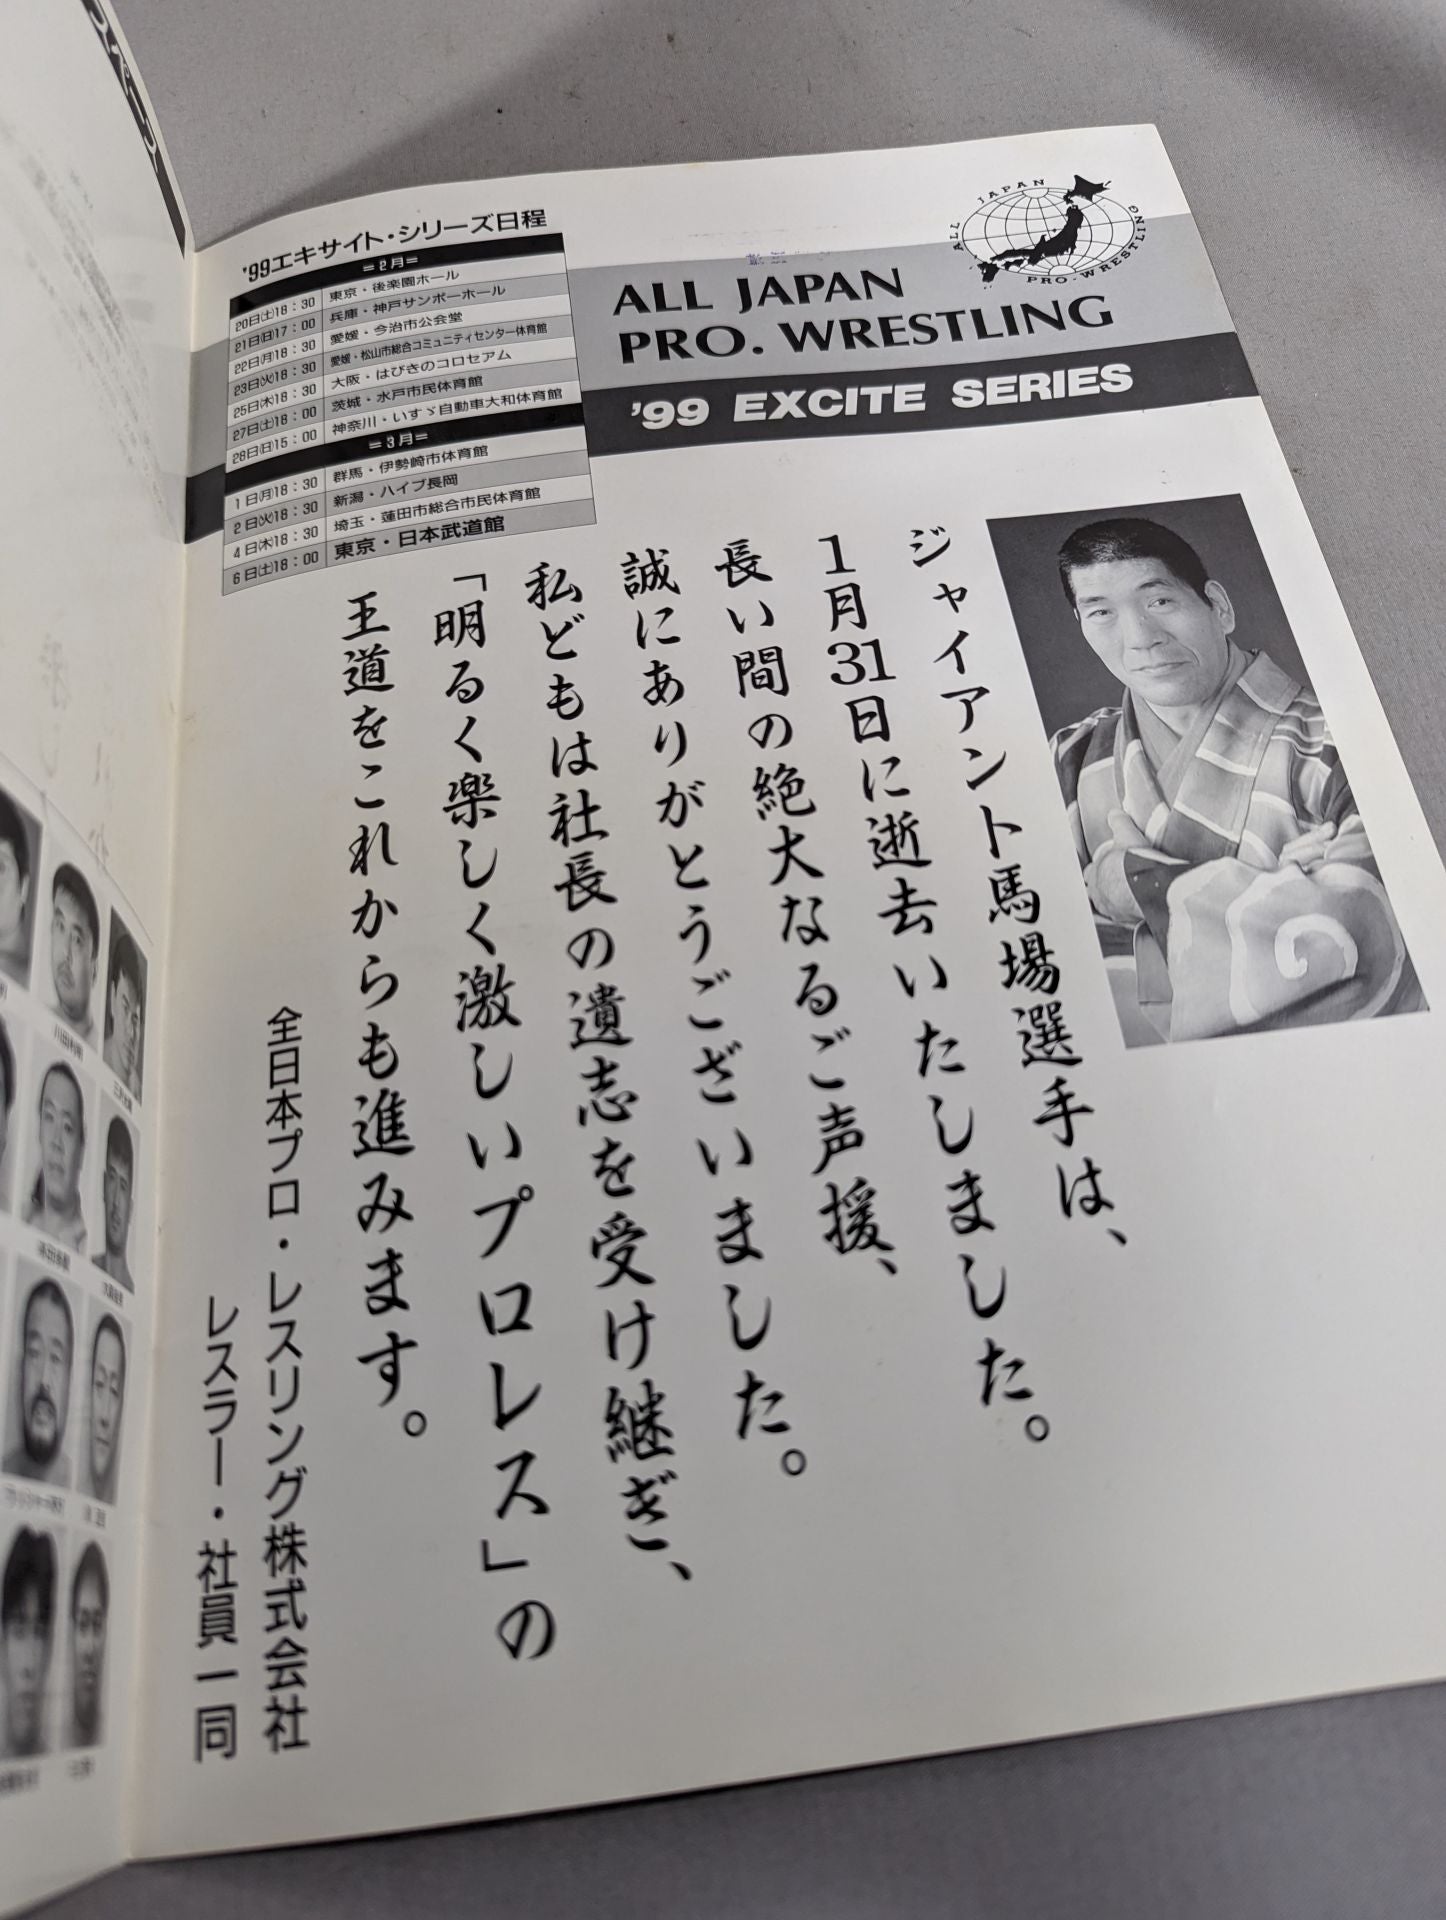 '99エキサイト・シリーズ日程
=2月=
20日(土)18:30 東京・後楽園ホール
21日(日)17:00 兵庫・神戸サンボーホール
22日(月)18:30 愛媛・今治市公会堂
23日(火)18:30 愛媛・松山市総合コミュニティセンター体育館
25日(木)18:30 大阪・はびきのコロセアム
27日(土)18:00 茨城・水戸市民体育館
28日(日)15:00 神奈川・いすゞ自動車大和体育館
=3月=
1日(月)18:30 群馬・伊勢崎市体育館
2日(火)18:30 新潟・ハイブ長岡
4日(木)18:30 埼玉・蓮田市総合市民体育館
6日(土)18:00 東京・日本武道館
ALL JAPAN PRO. WRESTLING
ALL JAPAN
PRO. WRESTLING
'99 EXCITE SERIES
ジャイアント馬場選手は、
1月31日に逝去いたしました。
長い間の絶大なるご声援、
誠にありがとうございました。
私どもは社長の遺志を受け継ぎ、
「明るく楽しく激しいプロレス」の
王道をこれからも進みます。
全日本プロ・レスリング株式会社
レスラー・社員一同
川田利明